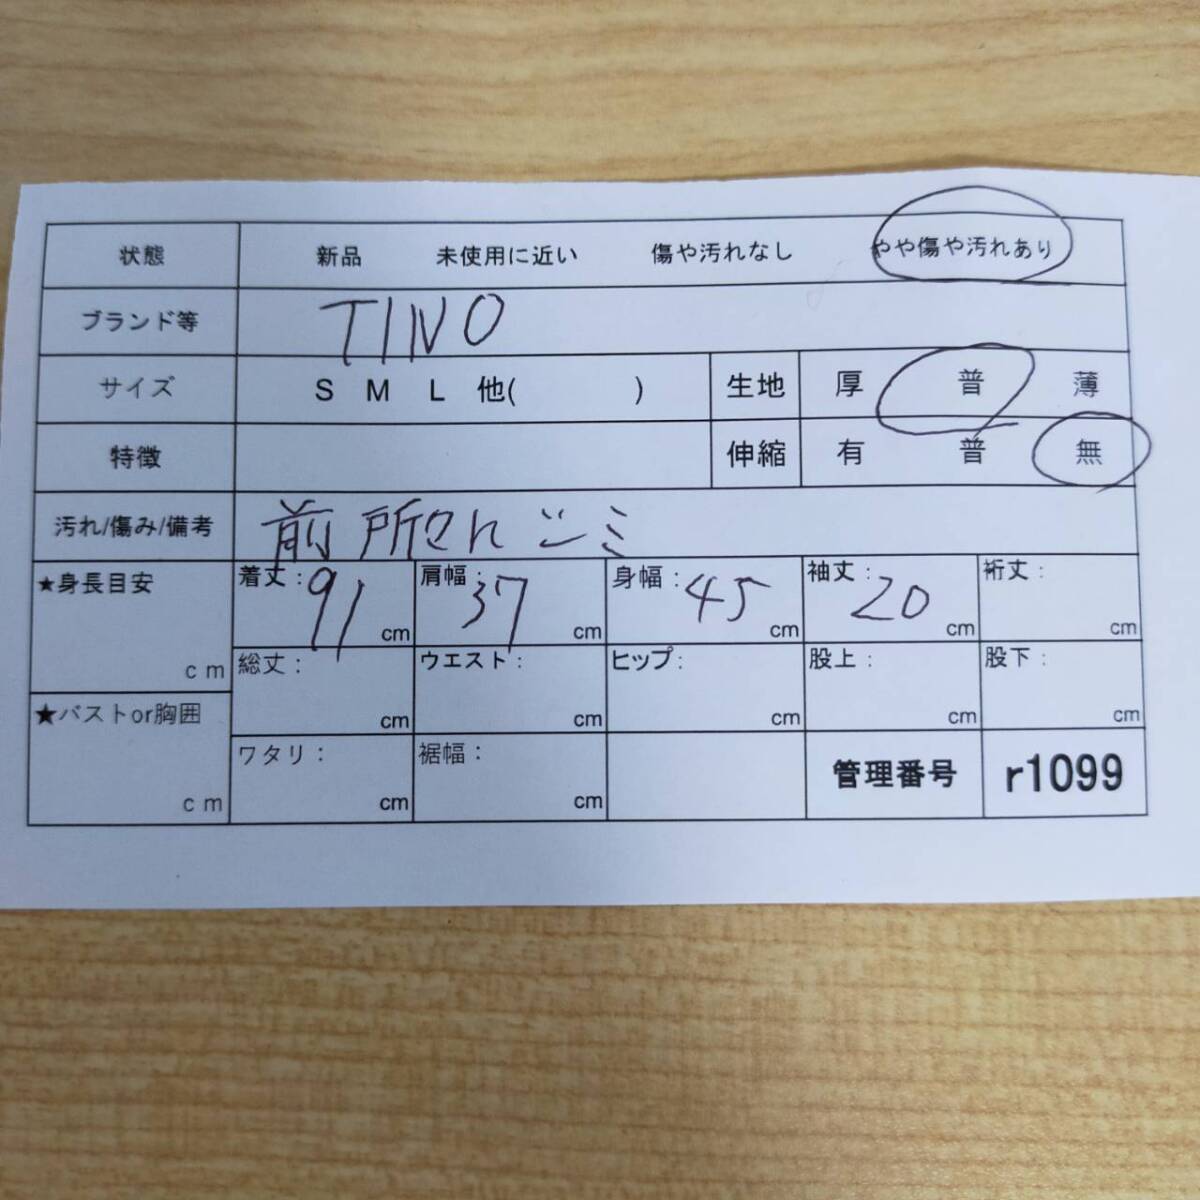 状態 新品 未使用に近い 傷や汚れなし やや傷や汚れあり
ブランド等 TINO
サイズ S M L 他( ) 生地 厚 普 薄
特徴 伸縮 有 普 無
汚れ/傷み/備考 前
★身長目安 cm
着丈: 91 cm 肩幅: 37 cm 身幅: 45 cm 袖丈: 20 cm 裄丈: cm
総丈: cm ウエスト: cm ヒップ: cm 股上: cm 股下: cm
★バストor胸囲 cm
ワタリ: cm 裾幅: cm 管理番号 r1099